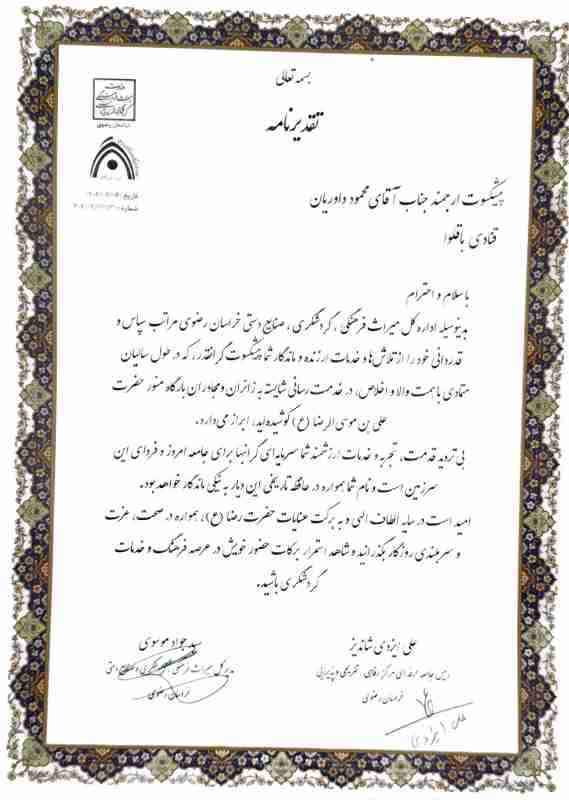 بسمه تعالی
تقدیرنامه
خراسان رضوی
تاریخ:
شماره:
پیشکسوت ارجمند جناب آقای محمود داوریان
قنادی باقلوا
با سلام و احترام
بدینوسیله اداره کل میراث فرهنگی ، گردشگری ، صنایع دستی خراسان رضوی مراتب سپاس و
قدردانی خود را از تلاش‌ها و خدمات ارزنده و ماندگار شما پیشکسوت گرانقدر، که در طول سالیان
متمادی با همت والا و اخلاص، در خدمت رسانی شایسته به زائران و مجاوران بارگاه منور حضرت
علی بن موسی الرضا (ع) کوشیده‌اید، ابراز می‌دارد.
بی تردید قدمت، تجربه و خدمات ارزشمند شما سرمایه‌ای گرانبها برای جامعه امروز و فردای این
سرزمین است و نام شما همواره در حافظه تاریخی این دیار به نیکی ماندگار خواهد بود.
امید است در سایه الطاف الهی و به برکت عنایات حضرت رضا (ع)، همواره در صحت، عزت
و سربلندی روزگار بگذرانید و شاهد استمرار برکات حضور خویش در عرصه فرهنگ و خدمات
گردشگری باشید.
علی ایزدی شاندیز
رئیس جامعه حرفه‌ای مراکز رفاهی ، تفریحی و پذیرایی
خراسان رضوی
سید جواد موسوی
مدیر کل میراث فرهنگی ، گردشگری و صنایع دستی
خراسان رضوی